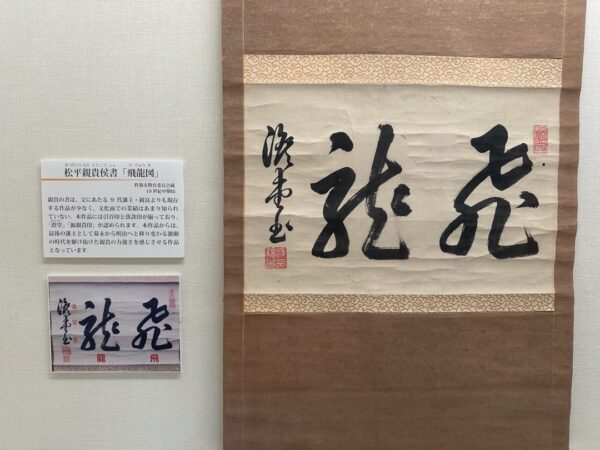 松平親貴侯書「飛龍図」
杵築市教育委員会蔵
19世紀中期頃
親貴の書は、父にあたる9代藩主・親良よりも現存
する作品が少なく、文化面での業績はあまり知られ
ていない。本作品には引首印と落款印が揃っており、
「源親貴印」が認められます。本作品からは、
最後の藩主として幕末から明治へと移り変わる激動
の時代を駆け抜けた親貴の力強さを感じさせる作品
となっています。
飛龍
飛龍
飛龍